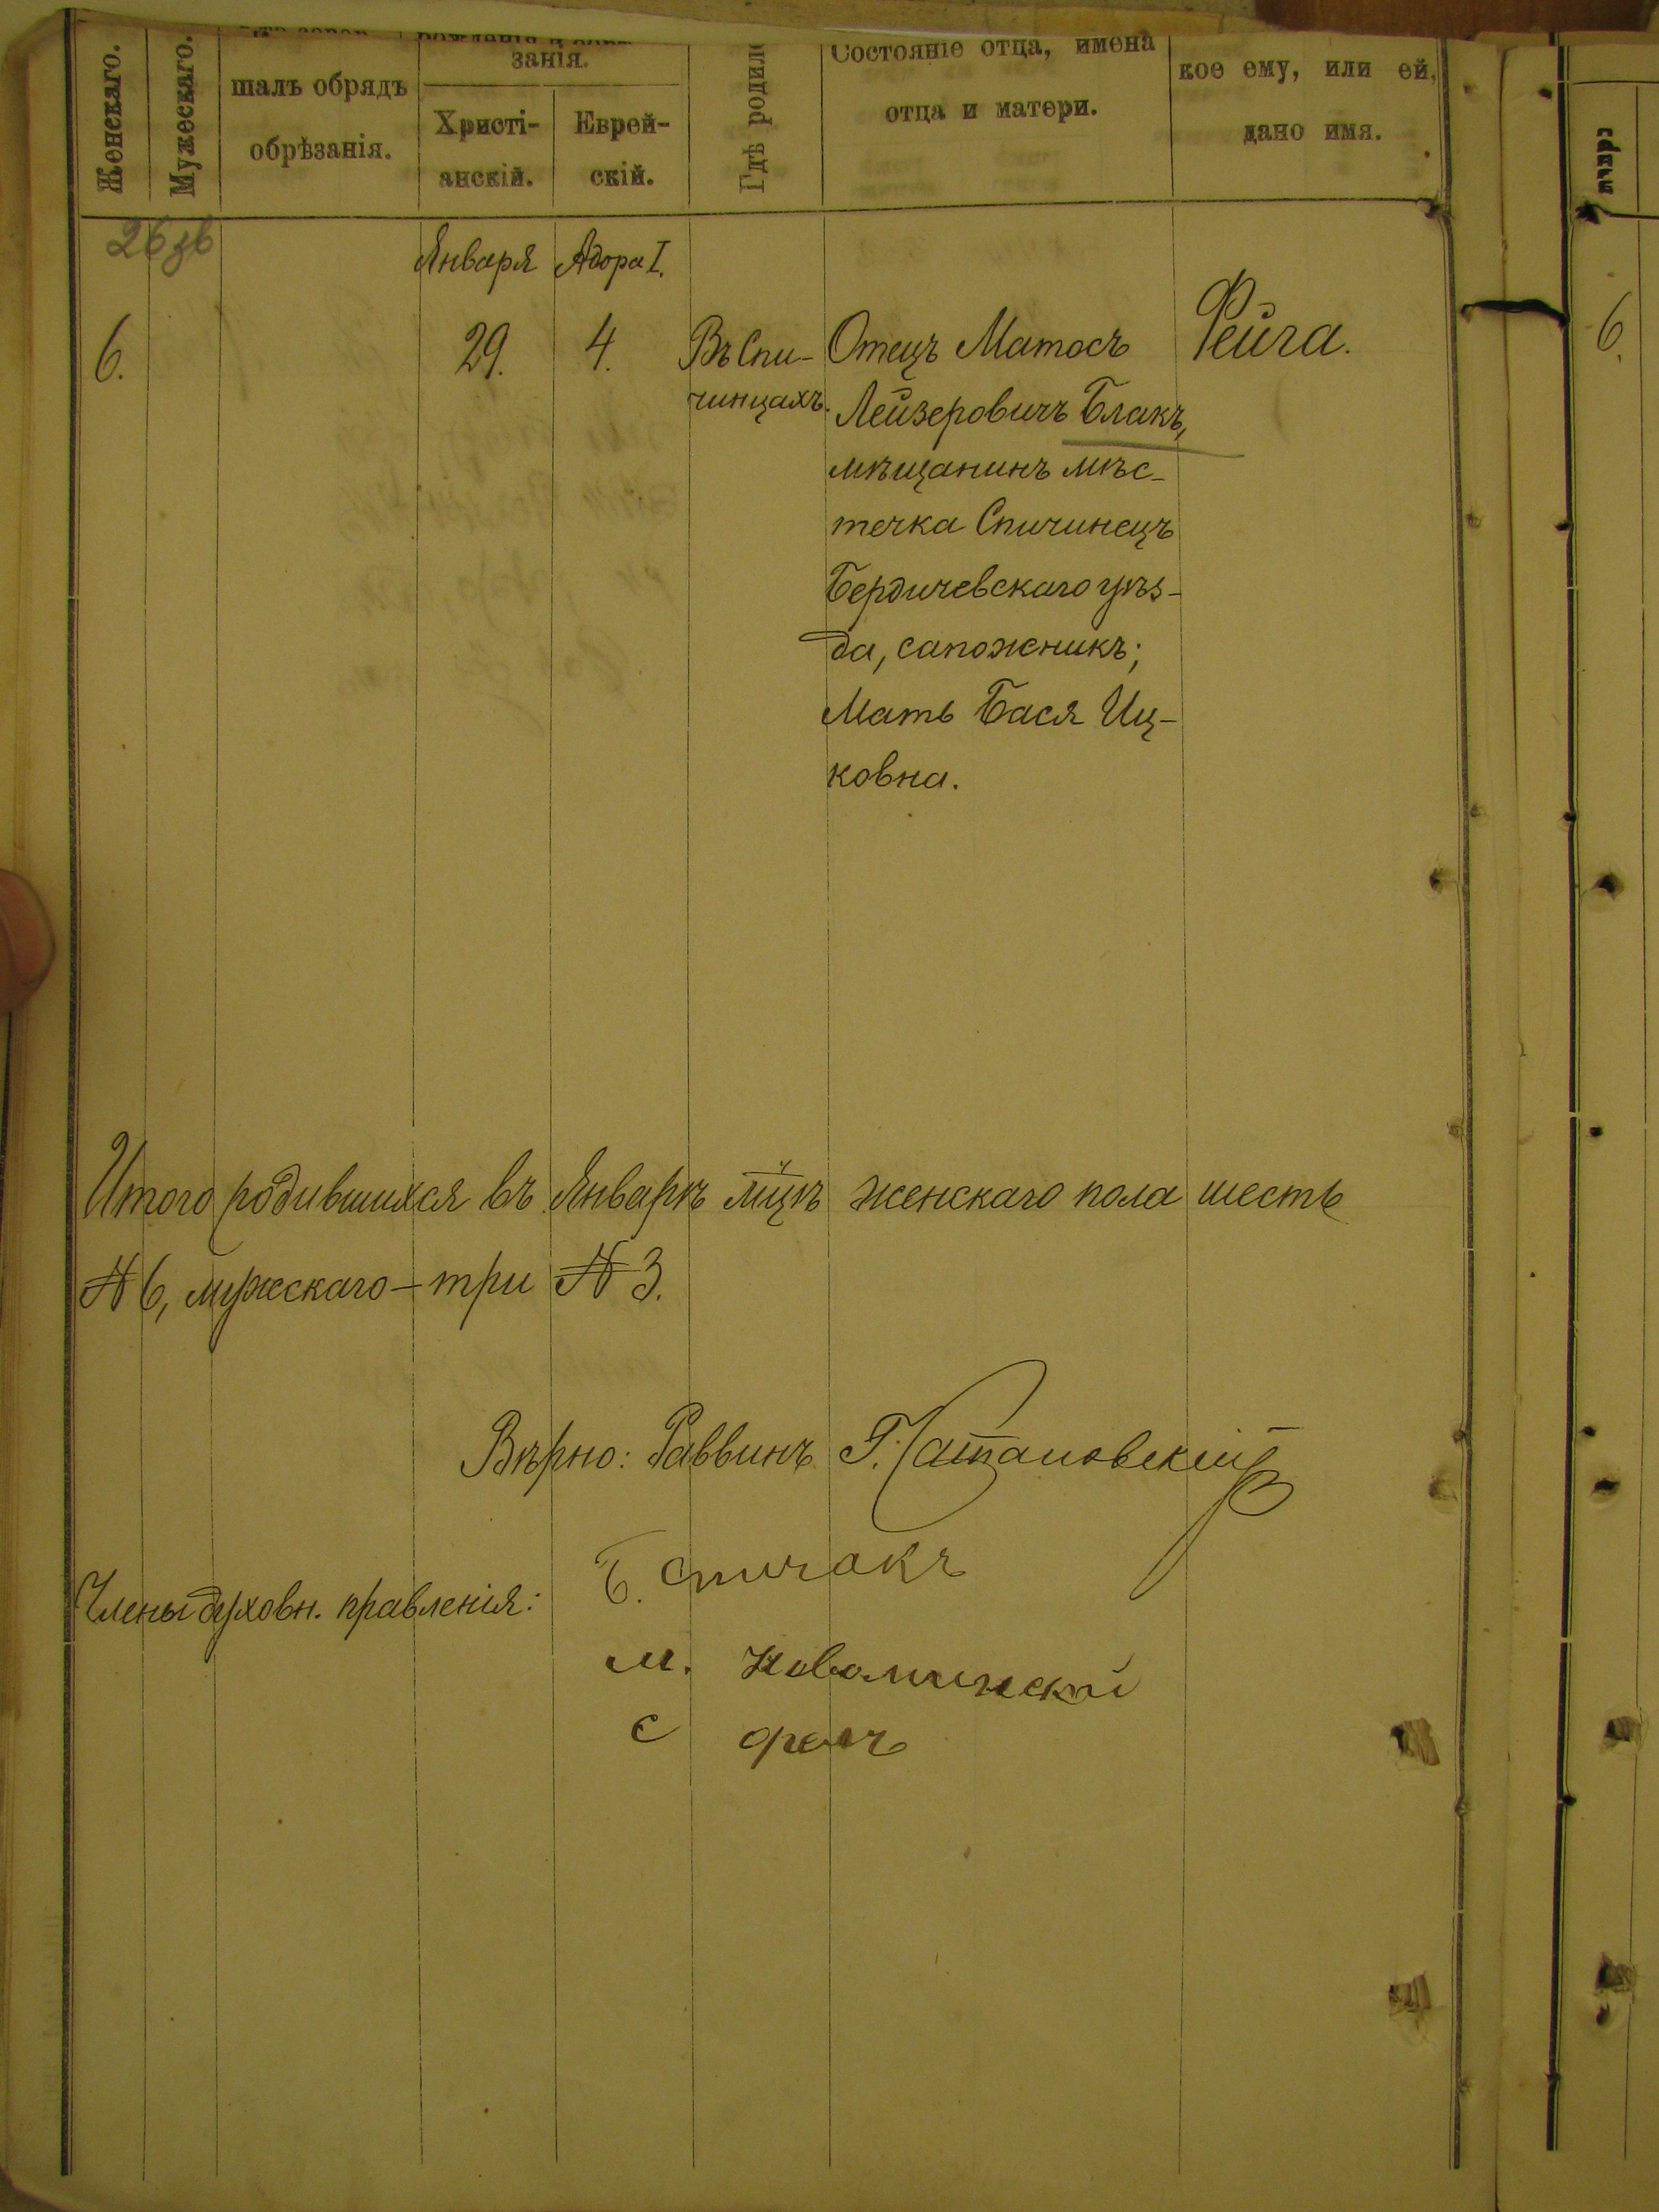 занія.
Женскаго.
Мужескаго.
шалъ обрядъ
обрѣзанія.
Христі-
анскій.
Еврей-
скій.
Гдѣ родил
Состояніе отца, имена
отца и матери.
кое ему, или ей,
дано имя.
Января
Адора I.
6.
29.
4.
Въ Спи-
чинцахъ.
Отецъ Матосъ
Лейзеровичъ Блакъ,
мѣщанинъ мѣс-
течка Спичинецъ
Бердичевскаго уѣз-
да, сапожникъ;
Мать Бася Иц-
ковна.
Фейга.
6.
Итого родившихся въ Январѣ мцѣ женскаго пола шесть
№ 6, мужескаго – три № 3.
Вѣрно: Раввинъ Г.
Члены духовн. правленія:
Б. Спичакъ
М.
С